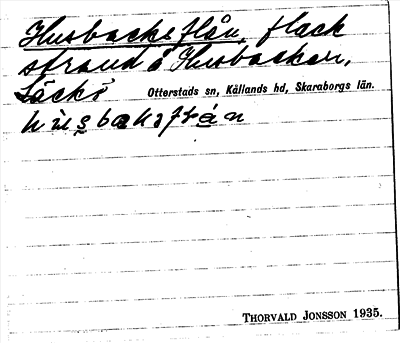 Husbacksflån, flack
strand å Husbacken,
Läckö Otterstads sn, Kållands hd, Skaraborgs län.
THORVALD JONSSON 1935.